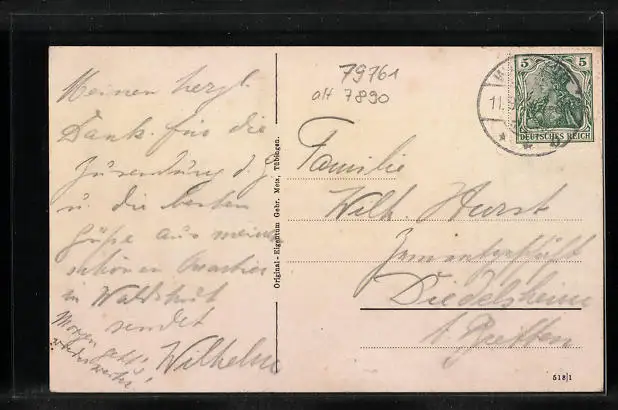 Meinen herzl.
Dank für die
Zusendung d. G
u. die besten
Grüße aus meinem
schönen Quartier
in Waldshut
sendet
Wilhelm
Morgen geht's
wieder weiter!
Original-Eigentum Gebr. Metz, Tübingen.
79761
alt 7890
11.
5 5
DEUTSCHES REICH
Familie
Wilh. Hurst
Diedelsheim
b. Bretten
518/1